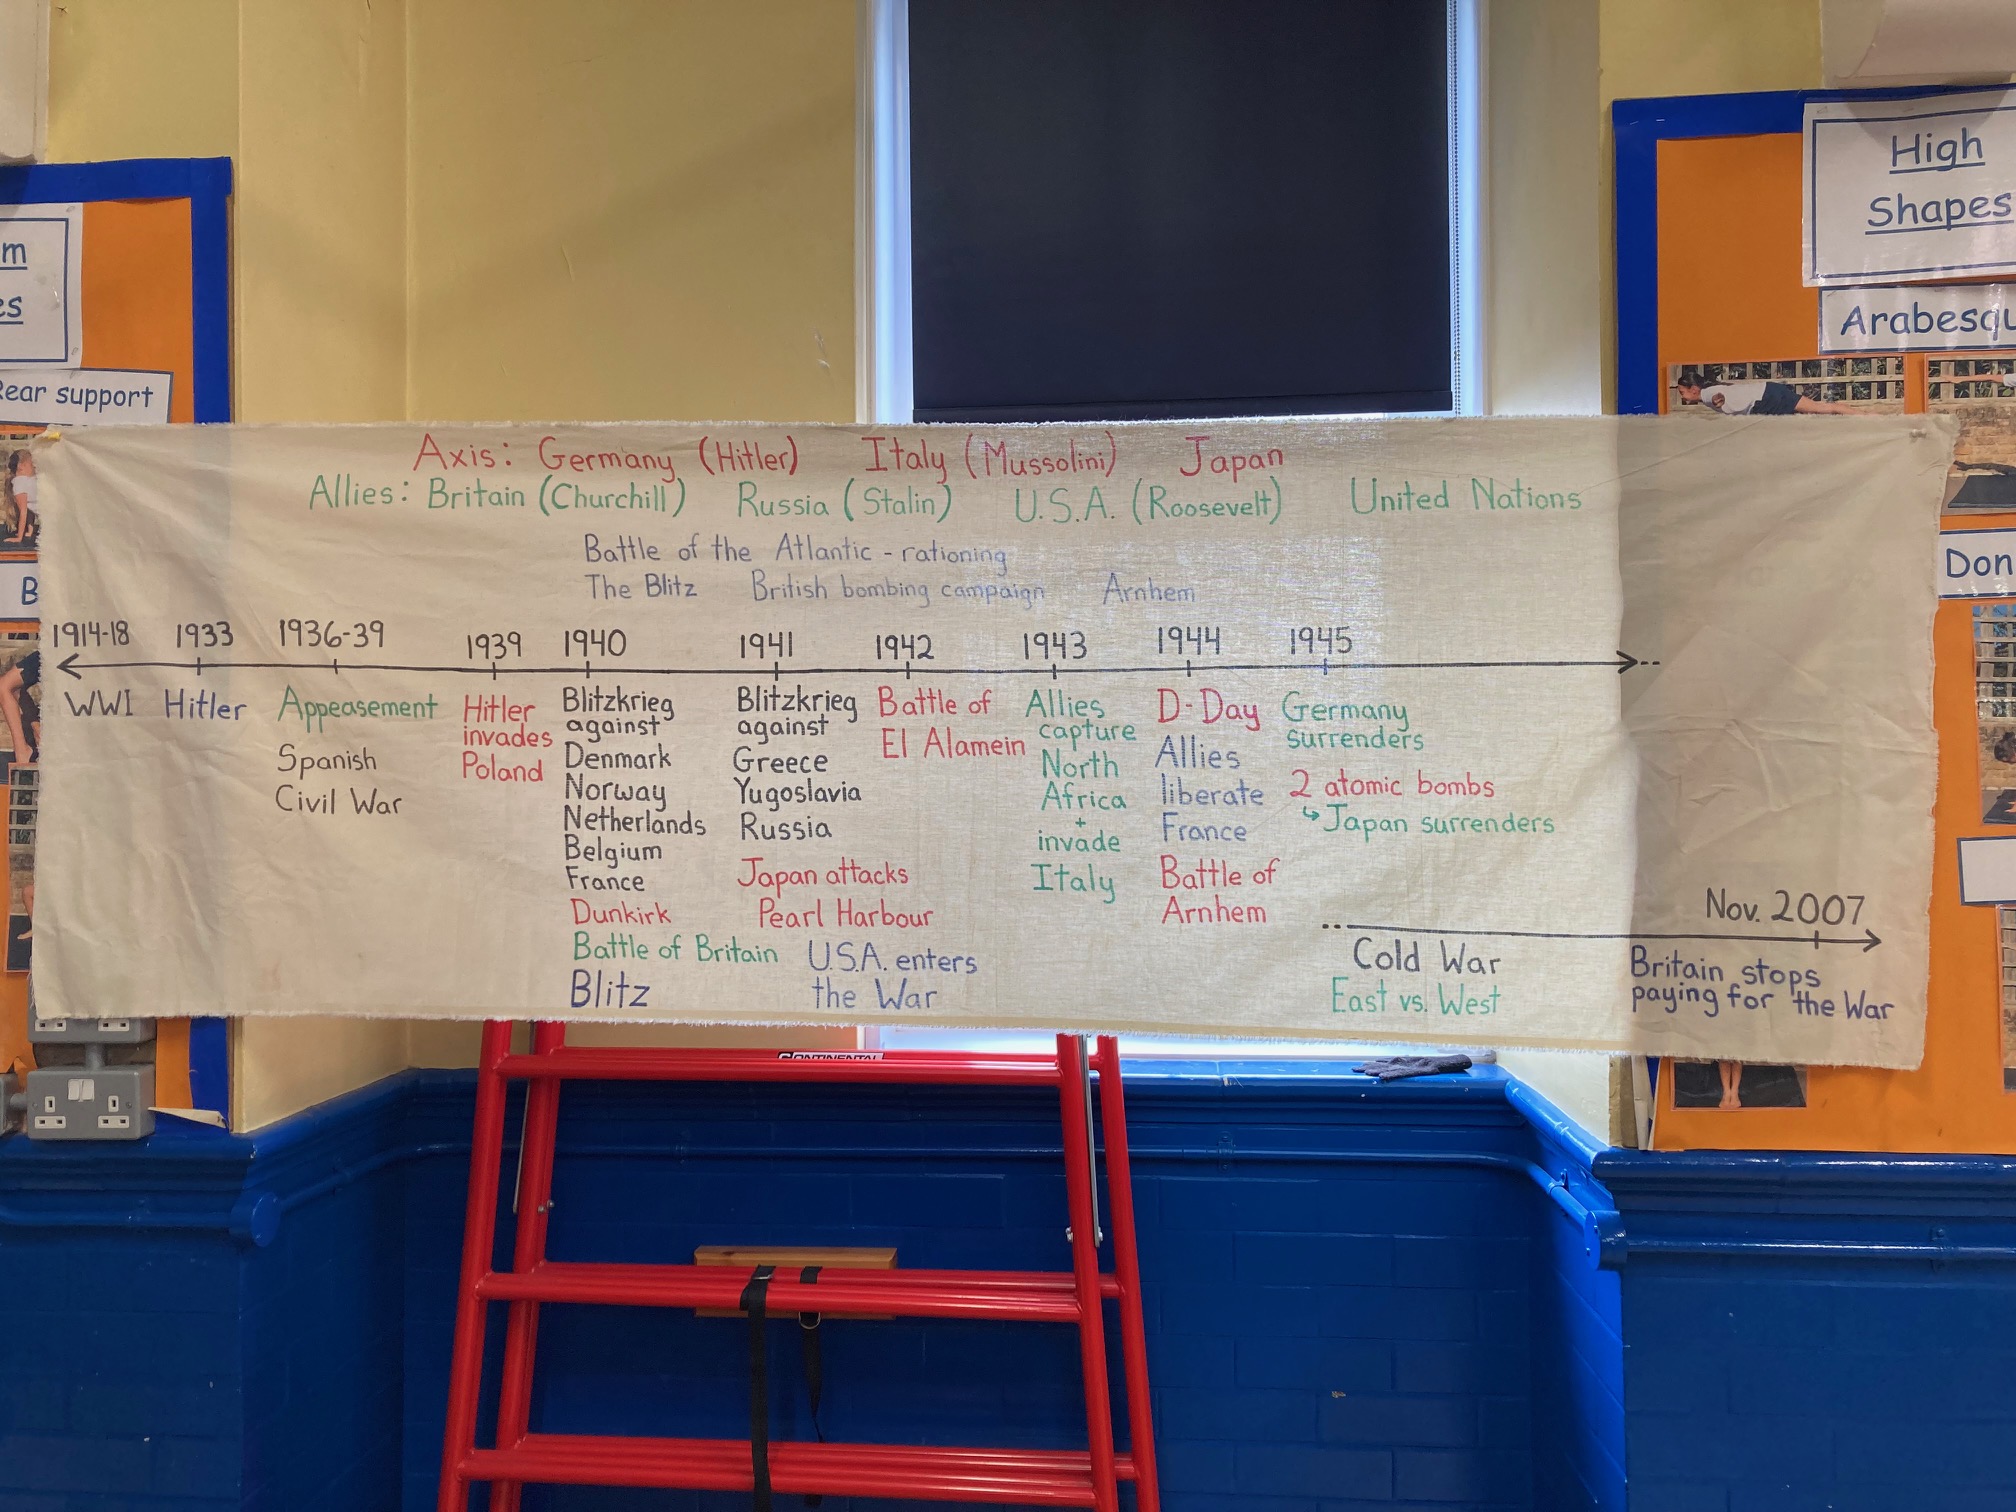 High
Shapes
m
es
Rear support
Axis: Germany (Hitler) Italy (Mussolini) Japan
Allies: Britain (Churchill) Russia (Stalin) U.S.A. (Roosevelt) United Nations
Battle of the Atlantic - rationing
The Blitz British bombing campaign Arnhem
1914-18 1933 1936-39 1939 1940 1941 1942 1943 1944 1945
WWI
Hitler
Appeasement
Spanish
Civil War
Hitler
invades
Poland
Blitzkrieg
against
Denmark
Norway
Netherlands
Belgium
France
Dunkirk
Battle of Britain
Blitz
Blitzkrieg
against
Greece
Yugoslavia
Russia
Japan attacks
Pearl Harbour
U.S.A. enters
the War
Battle of
El Alamein
Allies
capture
North
Africa
+
invade
Italy
D-Day
Allies
liberate
France
Battle of
Arnhem
Germany
surrenders
2 atomic bombs
↳ Japan surrenders
Cold War
East vs. West
Nov. 2007
Britain stops
paying for the War
B
Don
CONTINENTAL